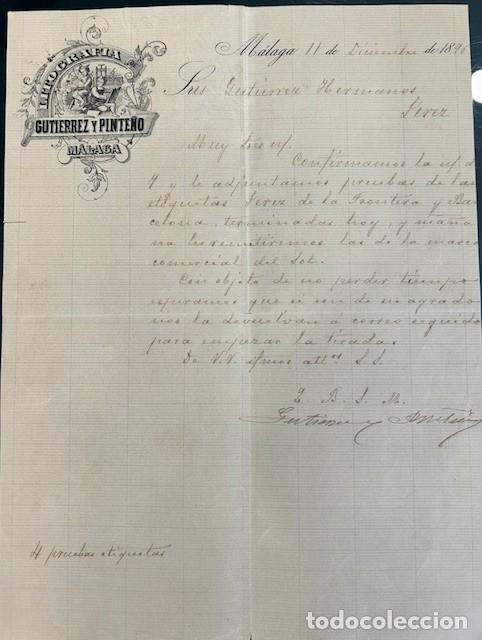 LITOGRAFIA
GUTIERREZ Y PINTEÑO
MÁLAGA
Málaga 11 de Diciembre de 189
Sres Gutierrez Hermanos
Jerez
Muy Sres ns/.
Confirmamos la n/. de
4 y le adjuntamos pruebas de las
etiquetas Jerez de la Frontera y Bar
celona, terminadas hoy, y maña
na les remitiremos las de la marca
comercial del Sol.
Con objeto de no perder tiempo
esperamos que si son de su agrado
nos la devuelvan á correo seguido
para empezar la tirada.
De V.V. afmos att.os S.S.
Q. B. S. M.
Gutierrez y Pinteño
4 pruebas etiquetas
todocoleccion